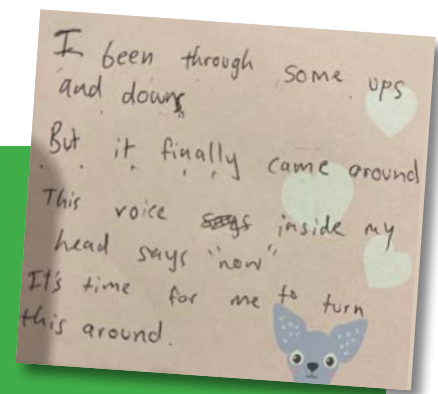 I been through some ups
and downs
But it finally came around
This voice says inside my
head says "now"
It's time for me to turn
this around.